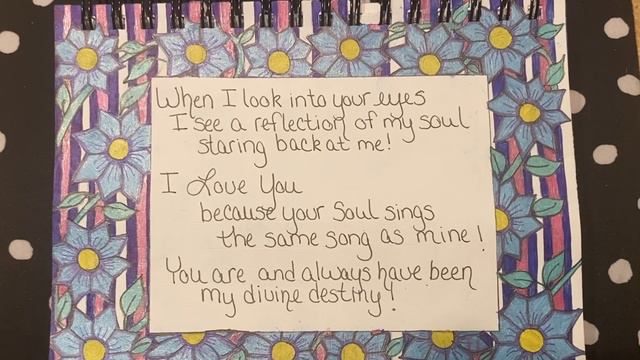 When I look into your eyes
I see a reflection of my soul
staring back at me!
I Love You
because your Soul sings
the same song as mine!
You are and always have been
my divine destiny!